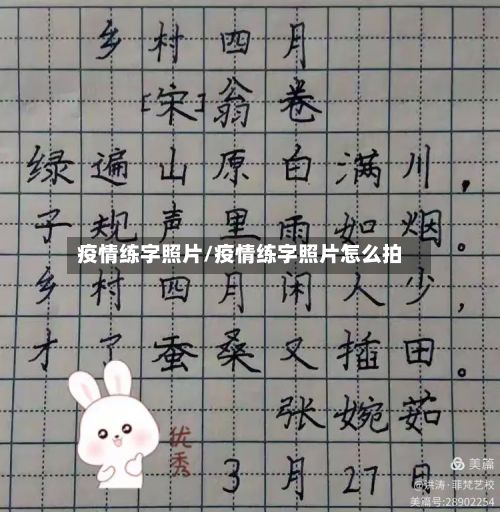 乡村四月
[宋]翁卷
绿遍山原白满川，
子规声里雨如烟。
疫情练字照片/疫情练字照片怎么拍
乡村四月闲人少，
才了蚕桑又插田。
张婉茹
优秀
3月27日
美篇
@洪涛·菲梵艺校
美篇号:28902254